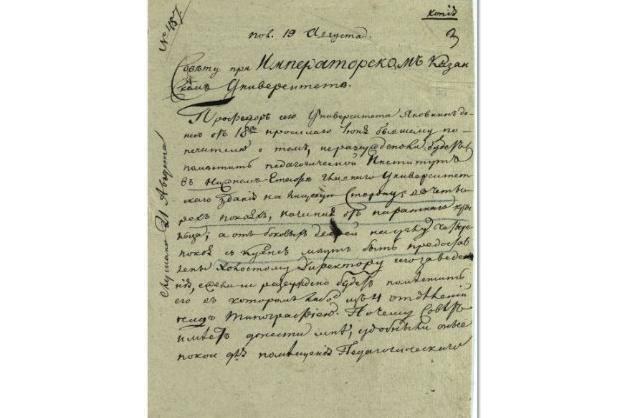 копія
№ 457
пол. 19 Августа
3
Совѣту при Императорскомъ Казан
скомъ Университетѣ.
Профессоръ сего Университета Яковкинъ до
несъ отъ 18го прошлаго Іюня бывшему по
печителю о томъ, не разсуждено ли будетъ
помѣстить педагогической Институтъ
въ нижнемъ Етажѣ главнаго Университет
скаго зданія на лицевую сторону въ четы
рехъ покояхъ, начиная отъ параднаго крыль
ца, а отъ боковыхъ дверей
покоя съ кухнею могутъ быть предостав
лены Холостому Директору сего заведе
нія, если не разсуждено будетъ помѣстить
его въ которомъ либо изъ отдѣленій
надъ Типографіею. Почему Совѣтъ
имѣетъ донести мнѣ, удобны ли
покои для помѣщенія Педагогическаго
Слушано 21 Августа